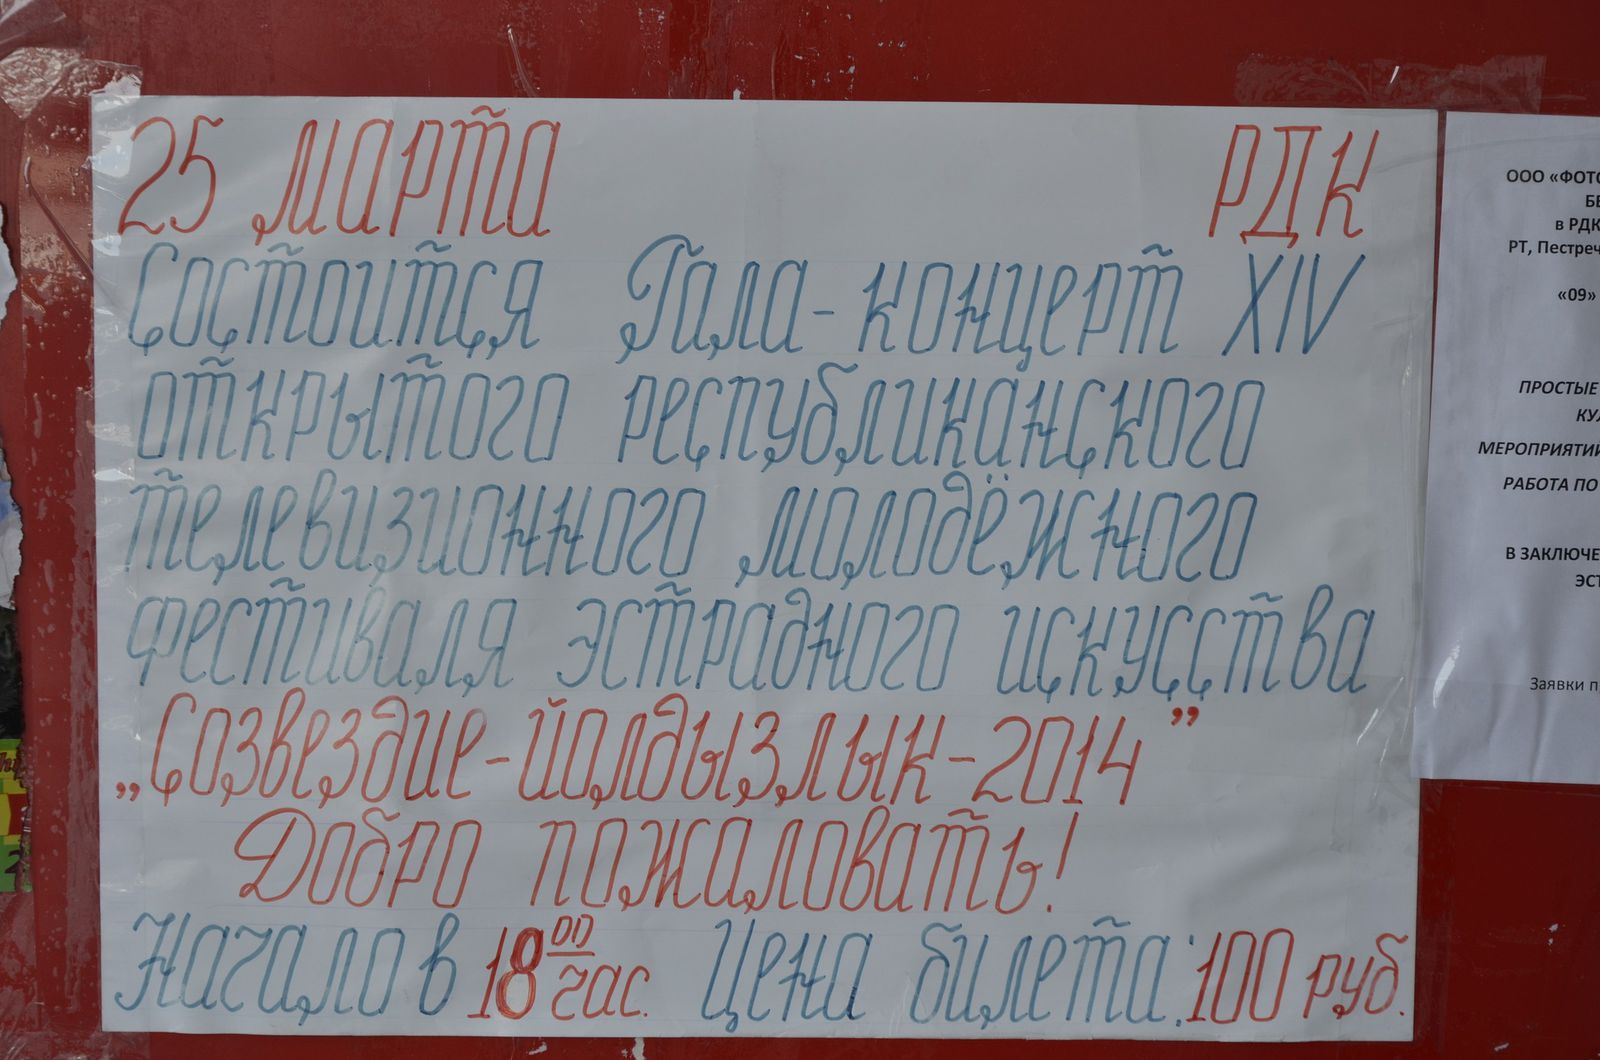 25 марта РДК
Состоится Гала-концерт XIV
открытого республиканского
телевизионного молодёжного
фестиваля эстрадного искусства
„Созвездие-Йолдызлык-2014”
Добро пожаловать!
Начало в 18 00 час. Цена билета: 100 руб.
ООО «ФОТО
БЕ
в РДК
РТ, Пестреч
«09»
ПРОСТЫЕ
КУЛ
МЕРОПРИЯТИ
РАБОТА ПО
В ЗАКЛЮЧЕ
ЭСТ
Заявки п